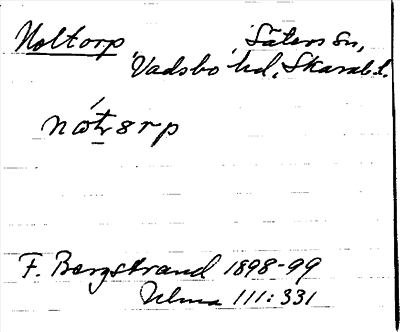 Noltorp, Säters sn,
Vadsbo hd, Skarab. l.
F. Bergstrand 1898-99
Ulma 111:331